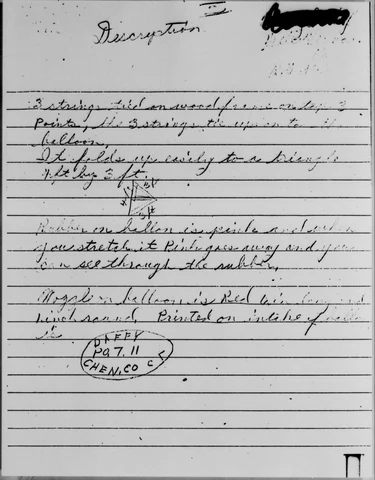 Descryption
3 strings tied on wood frame on top 3
Points, the 3 strings tie up on to the
balloon,
It folds up easily to a triangle
4 ft by 3 ft.
3 ft
Rubber on ballon is pink and when
you stretch it Pink goes away and you
can see through the rubber,
Nozzle on balloon is Red
inch round Printed on intake of
is
DAFFY
PQ 7.11
CHEN, CO